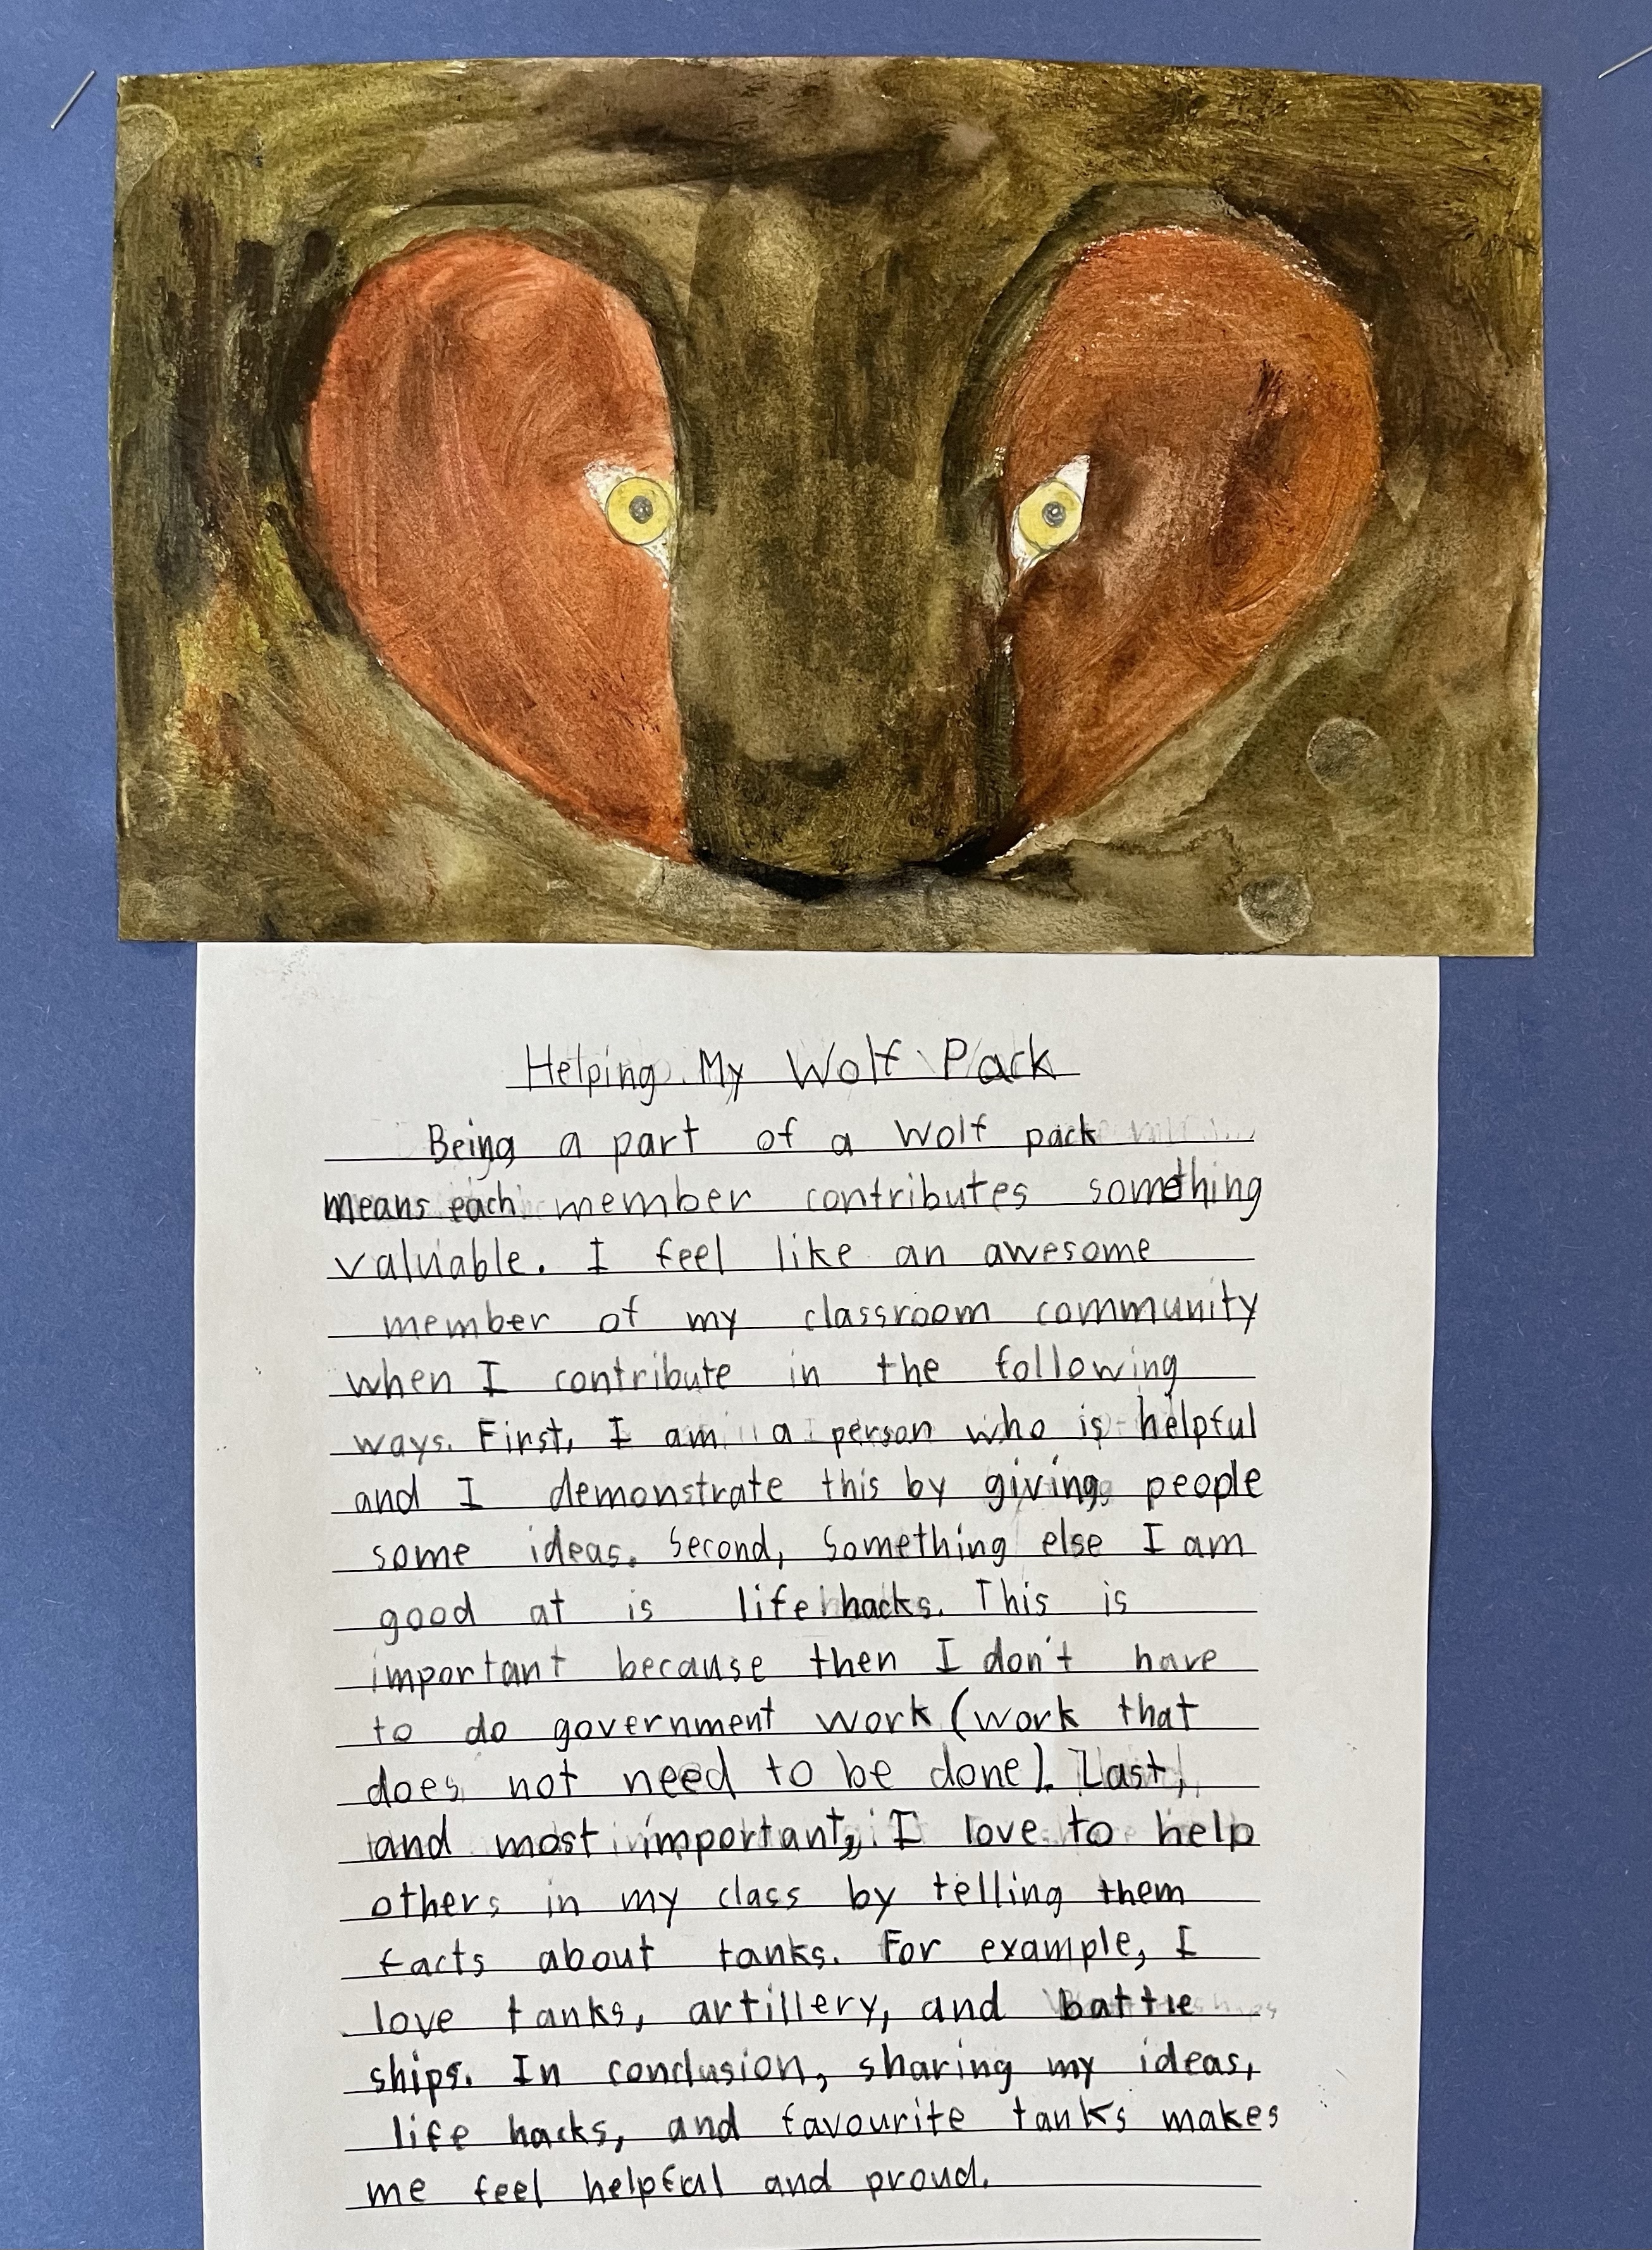 Helping My Wolf Pack
Being a part of a wolf pack
means each member contributes something
valuable. I feel like an awesome
member of my classroom community
when I contribute in the following
ways. First, I am a person who is helpful
and I demonstrate this by giving people
some ideas. Second, Something else I am
good at is life hacks. This is
important because then I don't have
to do government work (work that
does not need to be done). Last,
and most important, I love to help
others in my class by telling them
facts about tanks. For example, I
love tanks, artillery, and battle
ships. In conclusion, sharing my ideas,
life hacks, and favourite tanks makes
me feel helpful and proud.